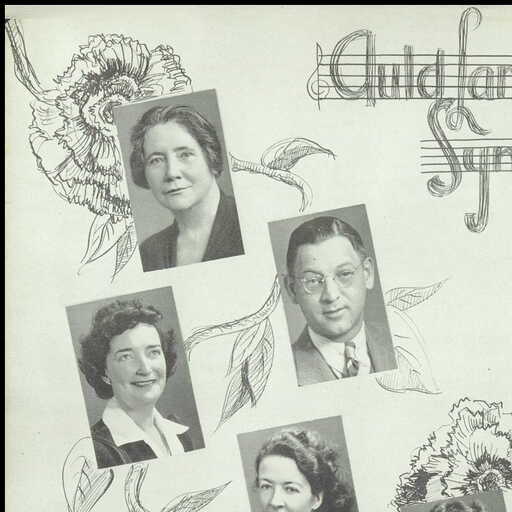 Auld Lan
Syn